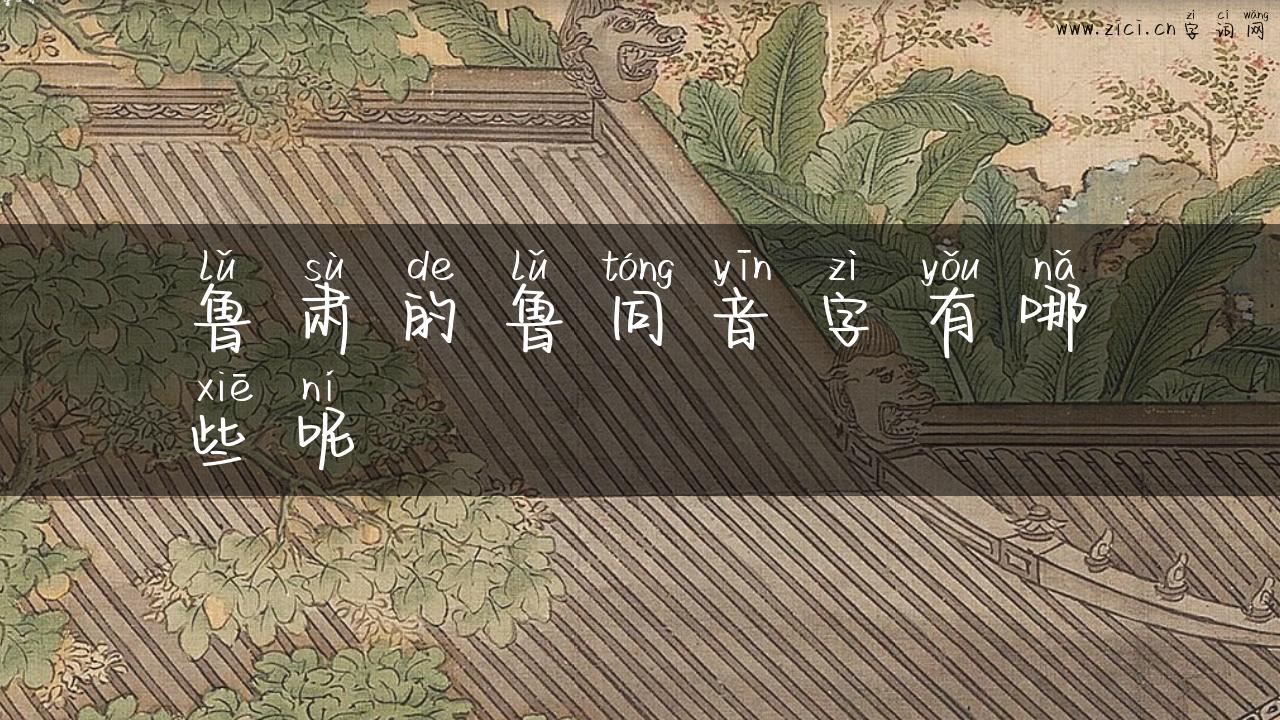 zì cí wǎng
www.zici.cn 字词网
lǔ sù de lǔ tóng yīn zì yǒu nǎ
鲁肃的鲁同音字有哪
xiē ní
些呢